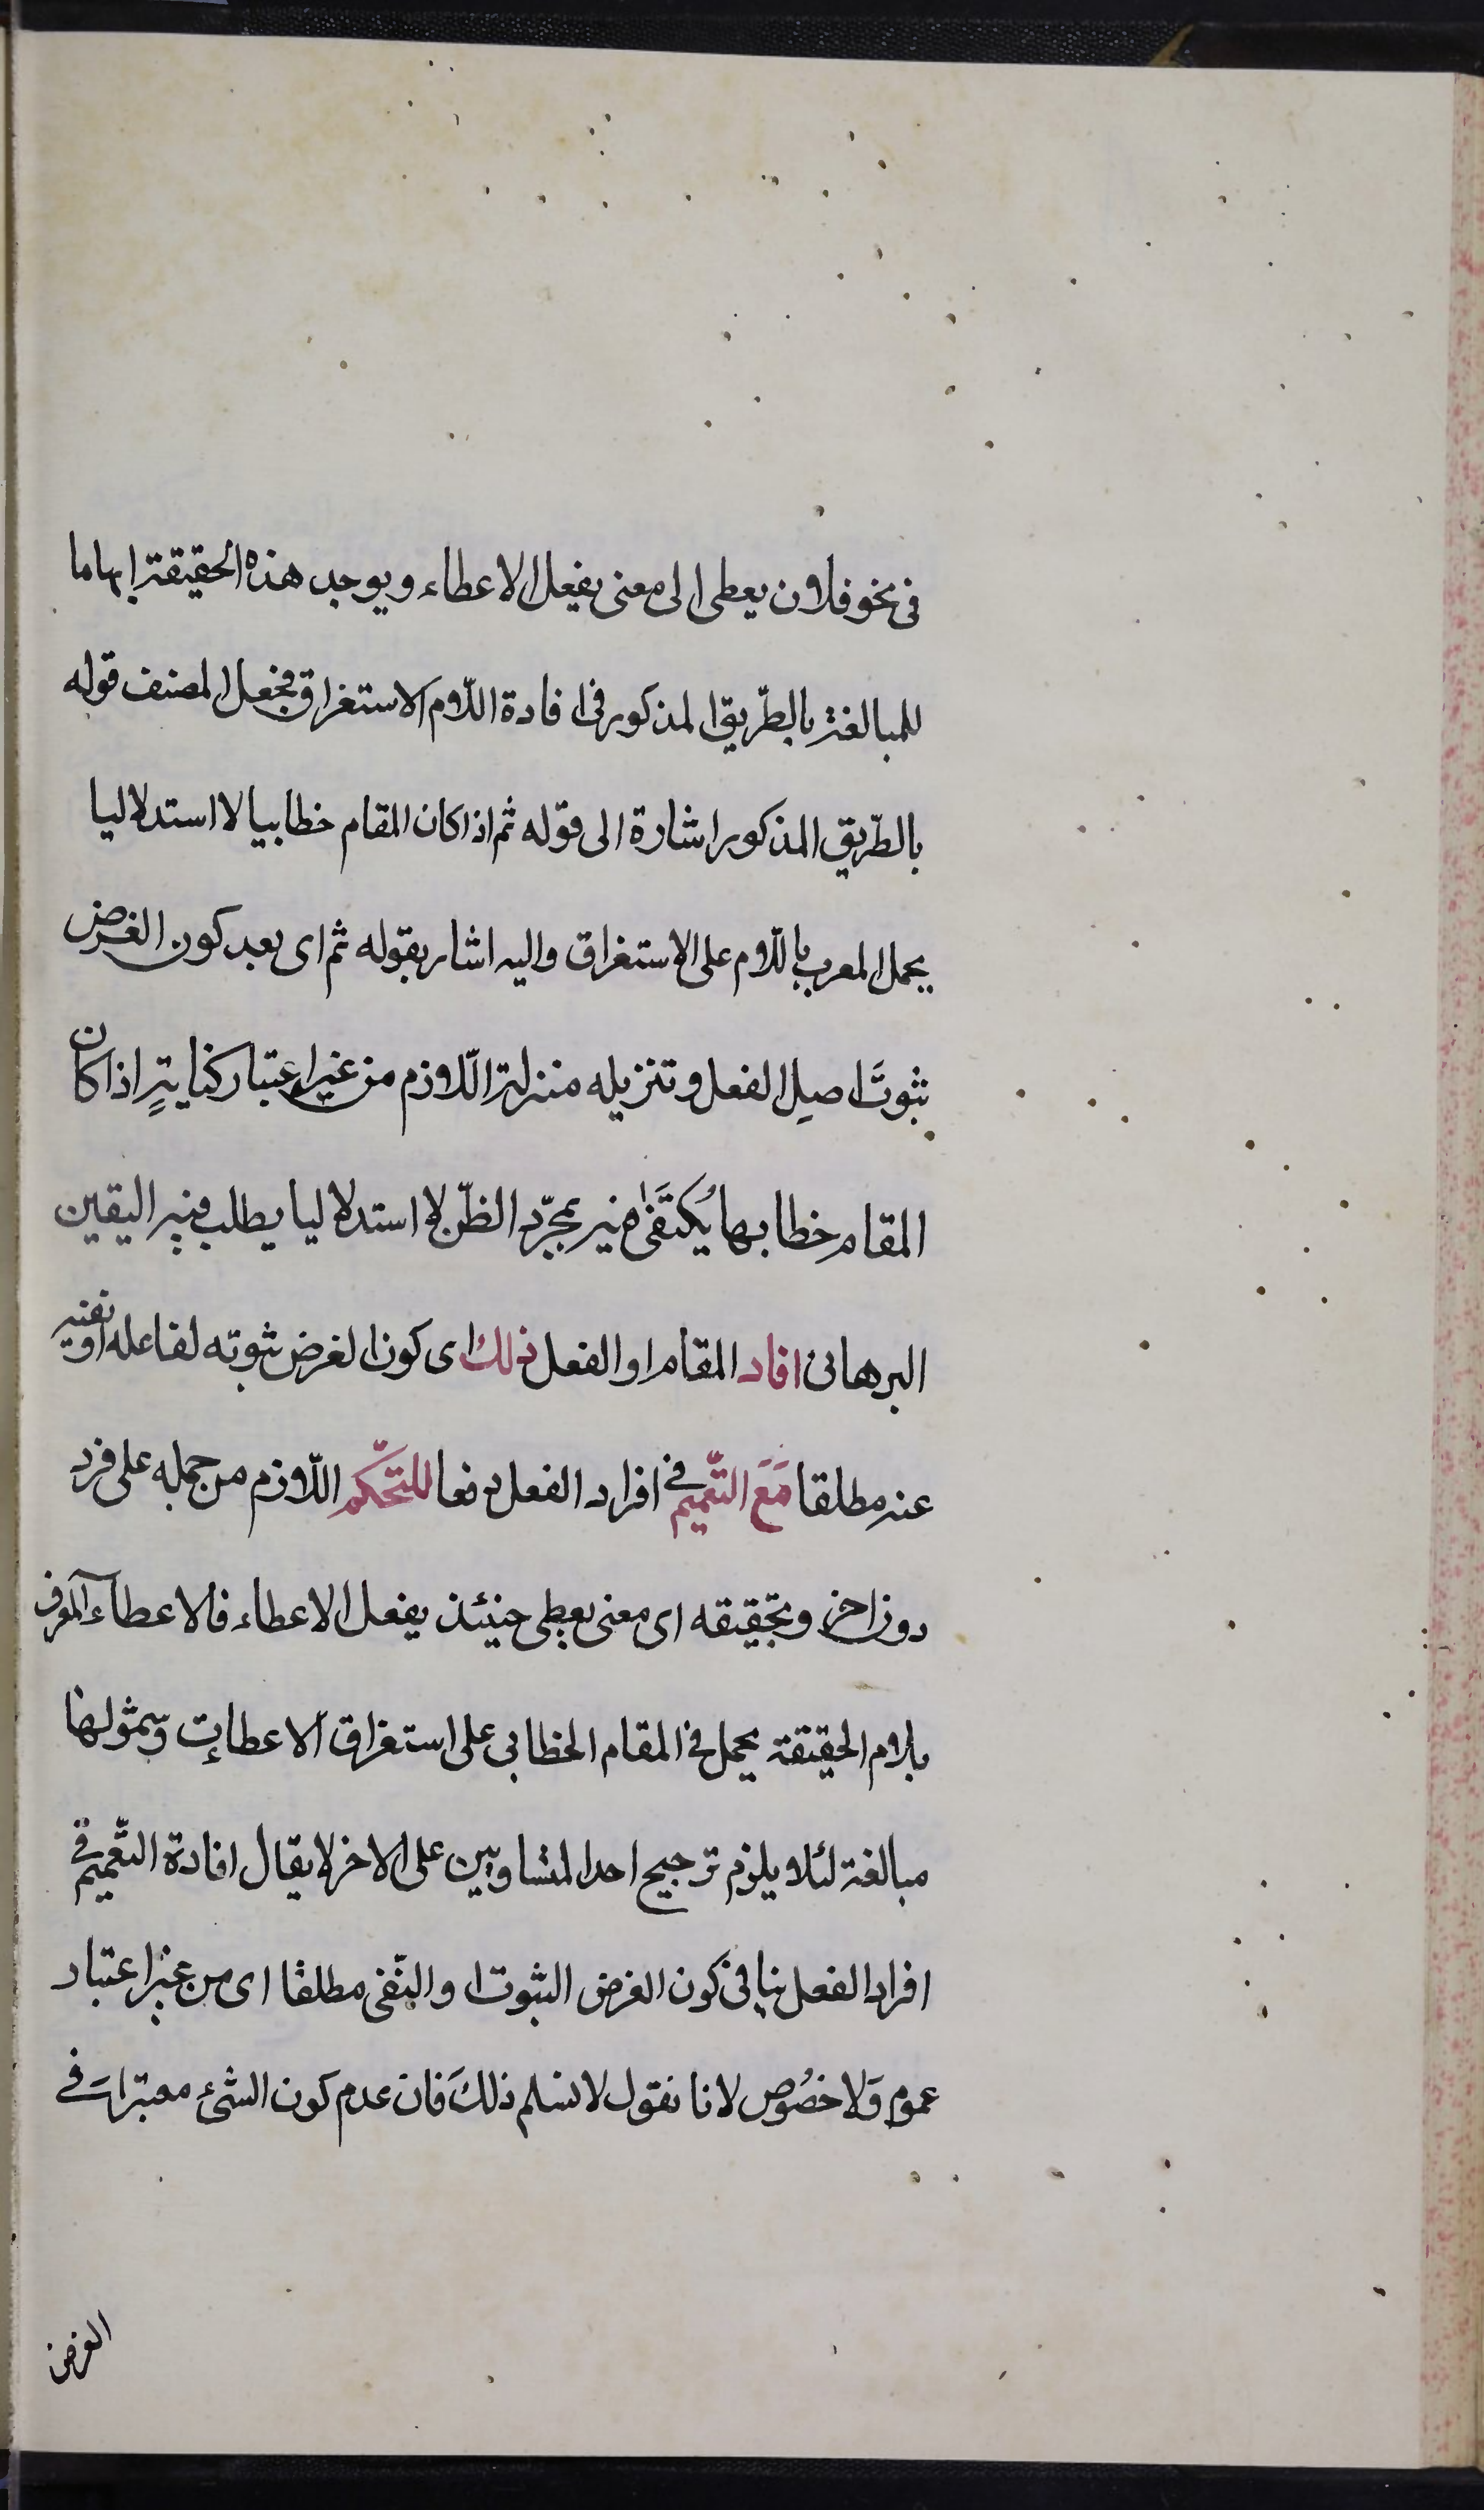 فى نحو فلان يعطى الى معنى يفعل الاعطاء ويوجد هذه الحقيقة ايهاما
للمبالغة بالطّريق المذكور فى افادة اللّام الاستغراق فجعل المصنف قوله
بالطّريق المذكور اشارة الى قوله ثم اذا كان المقام خطابيا لا استدلاليا
يحمل المعرب باللّام على الاستغراق واليه اشار بقوله ثم اى بعد كون الغرض
ثبوتَ اصلِ الفعل وتنزيله منزلة اللّازم من غير اعتبار كنايةٍ اذا كان
المقام خطابيها يُكتَفٰى فيه بمجرّد الظّن لا استدلاليا يطلب فيه اليقين
البرهانى افاد المقام او الفعل ذلك اى كون الغرض ثبوته لفاعله او نفيه
عنه مطلقا مَعَ التّعميم فى افراد الفعل دفعا للتّحكّم اللّازم من حمله على فرد
دون اخر وتحقيقه اى معنى يعطى حينئذ يفعل الاعطاء فالاعطاء المعرف
بلام الحقيقة يحمل فى المقام الخطابى على استغراق الاعطاءات وشمولها
مبالغة لئلا يلزم ترجيح احد المتساويين على الاخر لا يقال افادة التّعميم فى
افراد الفعل ينافى كون الغرض الثبوت او النّفى مطلقا اى من غير اعتبار
عموم وَلا خصُوص لانا نقول لا نسلم ذلكَ فان عدم كون الشئ معتبرا فى
الغرض